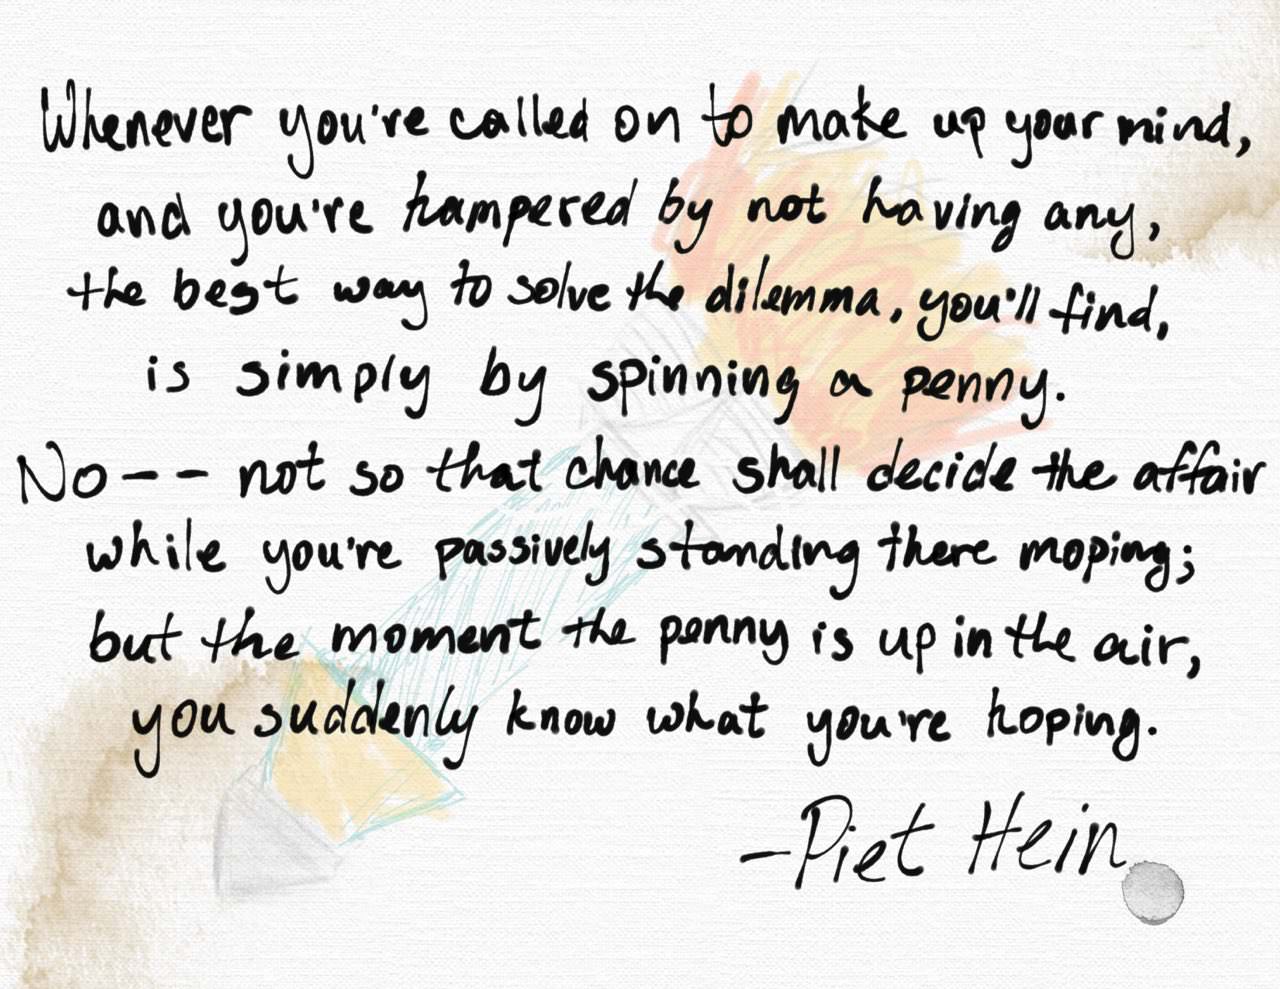 Whenever you're called on to make up your mind,
and you're hampered by not having any,
the best way to solve the dilemma, you'll find,
is simply by spinning a penny.
No -- not so that chance shall decide the affair
while you're passively standing there moping;
but the moment the penny is up in the air,
you suddenly know what you're hoping.
- Piet Hein